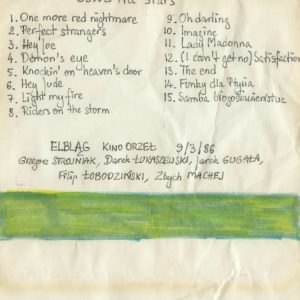 All Stars
1. One more red nightmare
2. Perfect strangers
3. Hey Joe
4. Demon's eye
5. Knockin' on heaven's door
6. Hey Jude
7. Light my fire
8. Riders on the storm
9. Oh darling
10. Imagine
11. Lady Madonna
12. (I can't get no) Satisfaction
13. The end
14. Funky dla Ptysia
15. Samba błogosławieństwa
ELBLĄG KINO ORZEŁ 9/3/86
Grzegorz STROJNIAK, Darek ŁUKASZEWSKI, Jarek GUGAŁA,
Filip ŁOBODZIŃSKI, Zbych MACHEJ